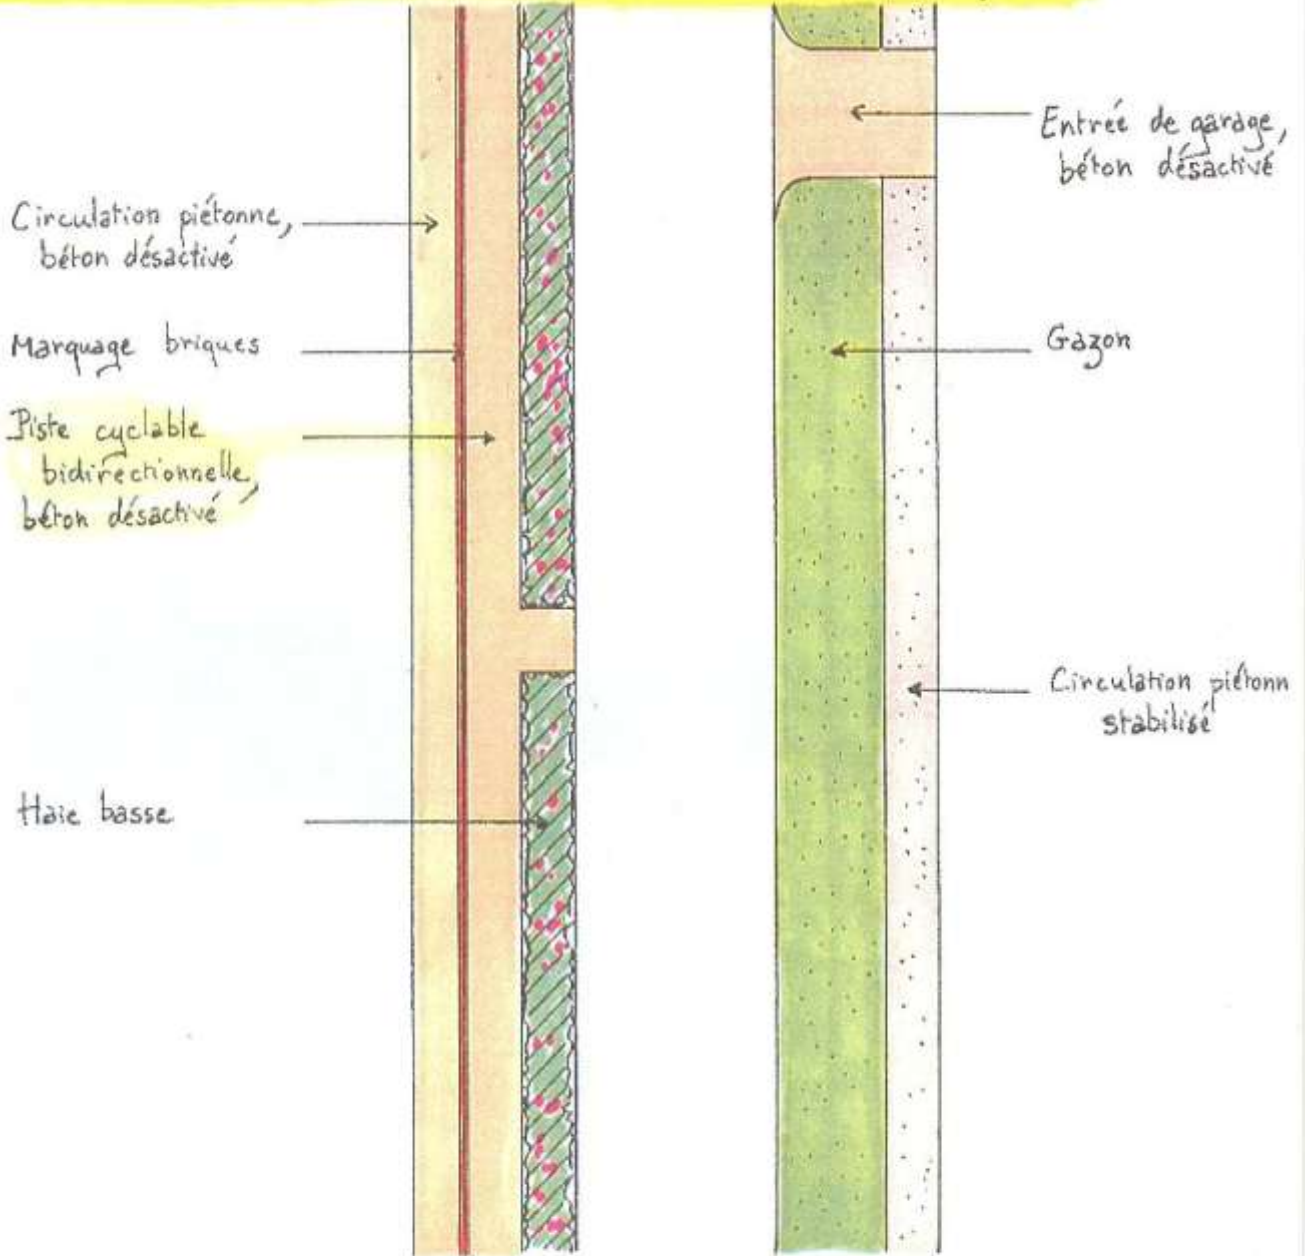 Circulation piétonne,
béton désactivé
Marquage briques
Piste cyclable
bidirectionnelle,
béton désactivé
Haie basse
Entrée de garage,
béton désactivé
Gazon
Circulation piétonn
stabilisé